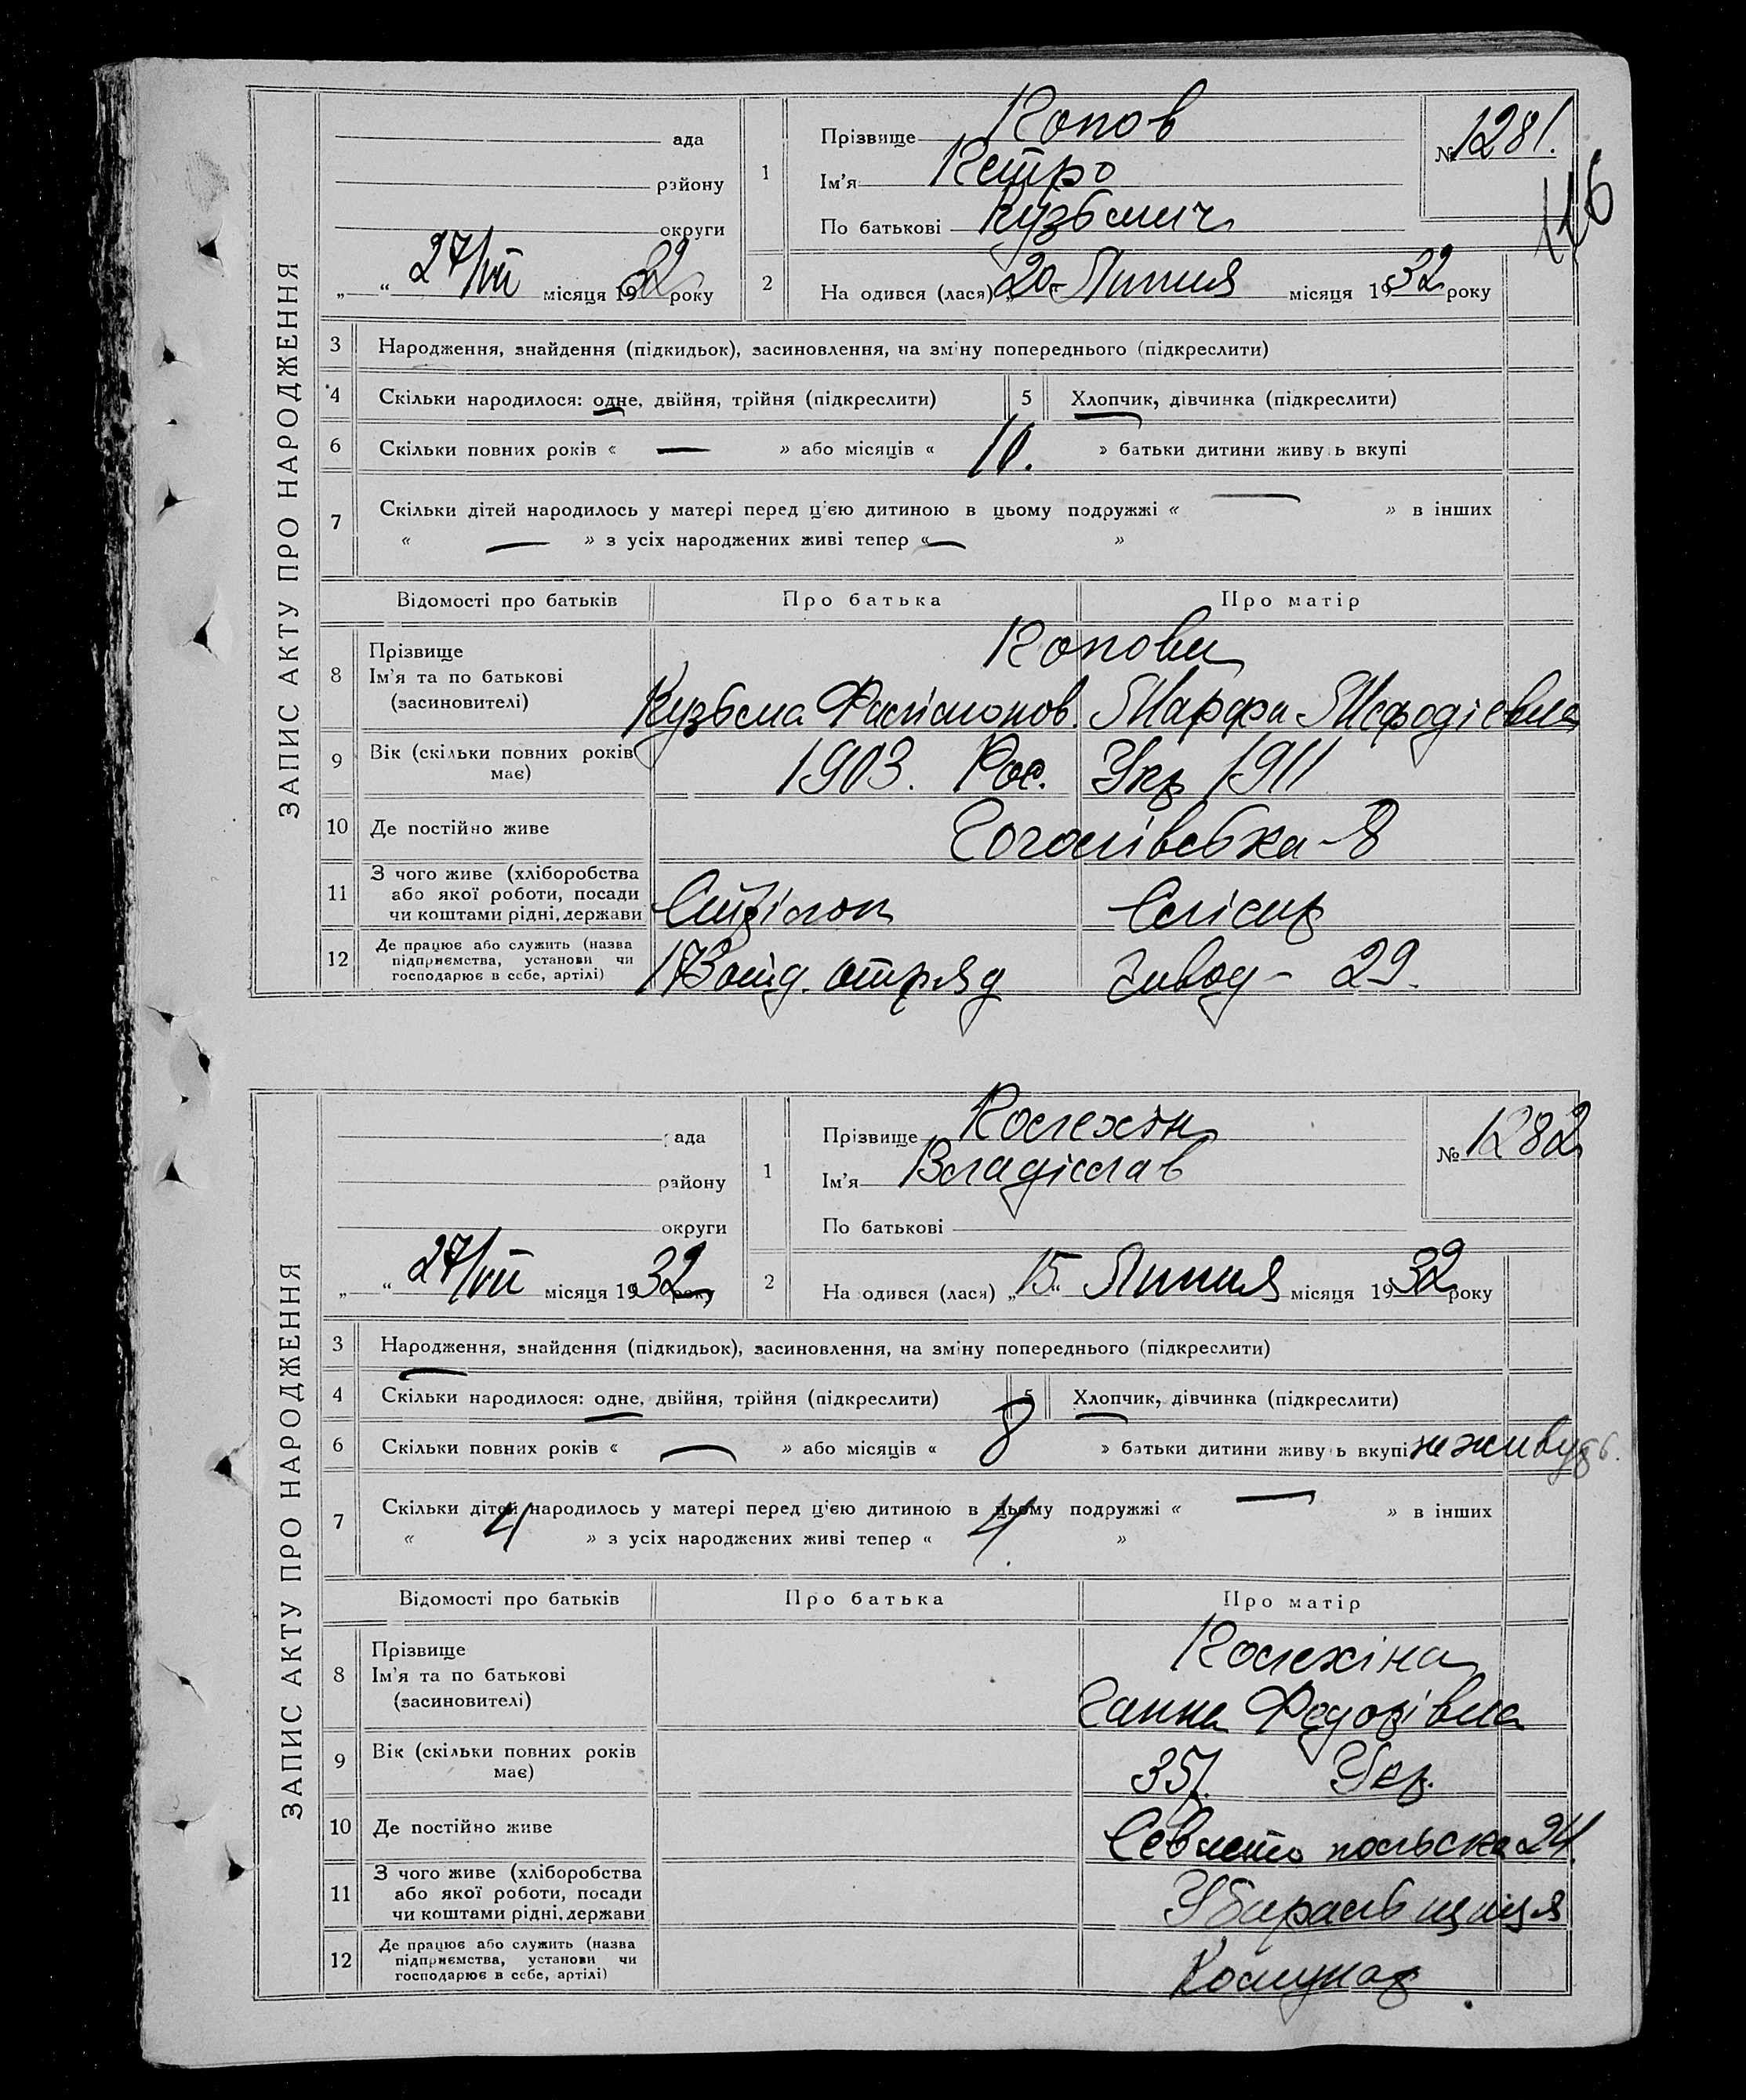 ЗАПИС АКТУ ПРО НАРОДЖЕННЯ
ада
району
округи
„ “ 27/VII місяця 1932 року
1
Прізвище Попов
Ім'я Петро
По батькові Кузьмич
№ 1281.
116
2
На одився (лася) „20“ Липня місяця 1932 року
3 Народження, знайдення (підкидьок), засиновлення, на зміну попереднього (підкреслити)
4 Скільки народилося: одне, двійня, трійня (підкреслити)
5 Хлопчик, дівчинка (підкреслити)
6 Скільки повних років « — » або місяців « 10. » батьки дитини живу ь вкупі
7 Скільки дітей народилось у матері перед ц'єю дитиною в цьому подружжі « — » в інших
« — » з усіх народжених живі тепер « — »
Відомості про батьків Про батька Про матір
8 Прізвище
Ім'я та по батькові
(засновителі)
Попови
Кузьма Филімонов. Марфа Мефодієвна
9 Вік (скільки повних років
має)
1903. Рос. Укр 1911
10 Де постійно живе Гоголівська-8
11 З чого живе (хліборобства
або якої роботи, посади
чи коштами рідні, держави
Стрілок Слісар
12 Де працює або служить (назва
підприємства, установи чи
господарює в себе, артілі)
отряд завод - 29.
ЗАПИС АКТУ ПРО НАРОДЖЕННЯ
ада
району
округи
„ “ 27/VII місяця 1932 року
1
Прізвище Полехін
Ім'я Владіслав
По батькові
№ 1282
2
На одився (лася) „15“ Липня місяця 1932 року
3 Народження, знайдення (підкидьок), засиновлення, на зміну попереднього (підкреслити)
4 Скільки народилося: одне, двійня, трійня (підкреслити)
5 Хлопчик, дівчинка (підкреслити)
6 Скільки повних років « — » або місяців « 8 » батьки дитини живу ь вкупі не живуть.
7 Скільки дітей народилось у матері перед ц'єю дитиною в цьому подружжі « — » в інших
« 4 » з усіх народжених живі тепер « 4. »
Відомості про батьків Про батька Про матір
8 Прізвище
Ім'я та по батькові
(засиновителі)
Полехіна
Ганна Федорівна
9 Вік (скільки повних років
має)
35 Укр.
10 Де постійно живе Севастопольска 24.
11 З чого живе (хліборобства
або якої роботи, посади
чи коштами рідні, держави
Убиральщиця
12 Де працює або служить (назва
підприємства, установи чи
господарює в себе, артілі)
Комунар